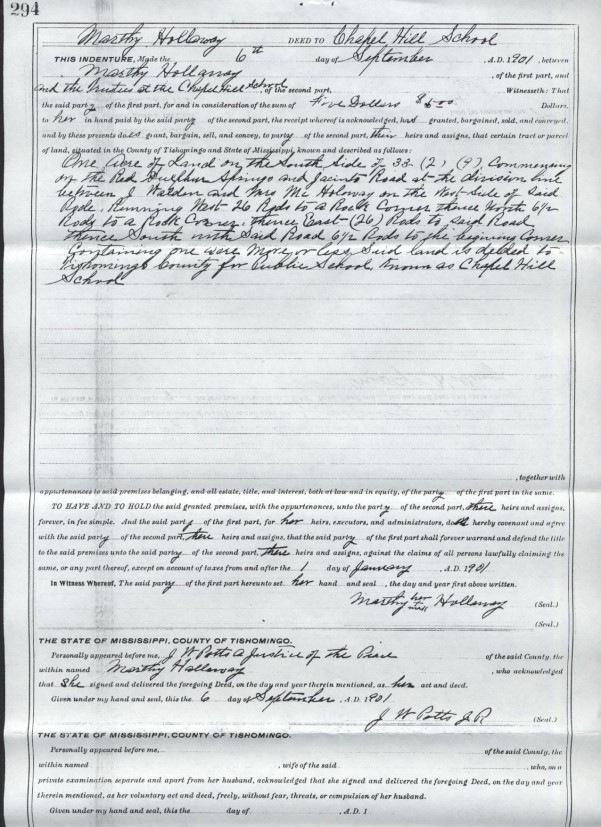 294
Marthy Hollaway DEED TO Chapel Hill School
THIS INDENTURE, Made the 6th day of September A.D. 1901, between
Marthy Hollaway of the first part, and
and the trusties at the Chapel Hill School, of the second part, Witnesseth: That
the said party of the first part, for and in consideration of the sum of Five Dollars $5.00 Dollars,
to her in hand paid by the said party of the second part, the receipt whereof is acknowledged, had granted, bargained, sold, and conveyed,
and by these presents does grant, bargain, sell, and convey, to party of the second part, their heirs and assigns, that certain tract or parcel
of land, situated in the County of Tishomingo and State of Mississippi, known and described as follows:
One Acre of Land on the South Side of 33. (2) (9), Commencing
on the Red Sulphur Springs and Jacinto Road at the division line
between J Walden and Mrs Mc Holoway on the West Side of Said
Rode, Running West 26 Rods to a Rock Corner thence North 6 1/2
Rods to a Rock Corner, thence East (26) Rods to said Road
thence South with Said Road 6 1/2 Rods to the begining Corner
Containing one acre More or less, Said land is deeded to
Tishomingo County for Public School, known as Chapel Hill
School
, together with
appurtenances to said premises belonging, and all estate, title, and interest, both at law and in equity, of the party of the first part in the same.
TO HAVE AND TO HOLD the said granted premises, with the appurtenances, unto the party of the second part, there heirs and assigns,
forever, in fee simple. And the said party of the first part, for her heirs, executors, and administrators, does hereby covenant and agree
with the said party of the second part, there heirs and assigns, that the said party of the first part shall forever warrant and defend the title
to the said premises unto the said party of the second part, there heirs and assigns, against the claims of all persons lawfully claiming the
same, or any part thereof, except on account of taxes from and after the 1 day of January, A.D. 1901
In Witness Whereof, The said party of the first part hereunto set her hand and seal, the day and year first above written.
Marthy her Hollaway (Seal.)
(Seal.)
THE STATE OF MISSISSIPPI, COUNTY OF TISHOMINGO.
Personally appeared before me, J W Potts a Justice of the Peace of the said County, the
within named Marthy Hollaway, who acknowledged
that She signed and delivered the foregoing Deed, on the day and year therein mentioned, as her act and deed.
Given under my hand and seal, this the 6 day of September, A.D. 1901
J W Potts (Seal.)
THE STATE OF MISSISSIPPI, COUNTY OF TISHOMINGO.
Personally appeared before me, of the said County, the
within named , wife of the said , who, on a
private examination separate and apart from her husband, acknowledged that she signed and delivered the foregoing Deed, on the day and year
therein mentioned, as her voluntary act and deed, freely, without fear, threats, or compulsion of her husband.
Given under my hand and seal, this the day of , A.D. 1